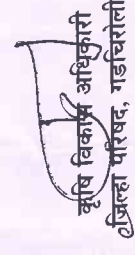 कृषि विकास अधिकारी
जिल्हा परिषद, गडचिरोली